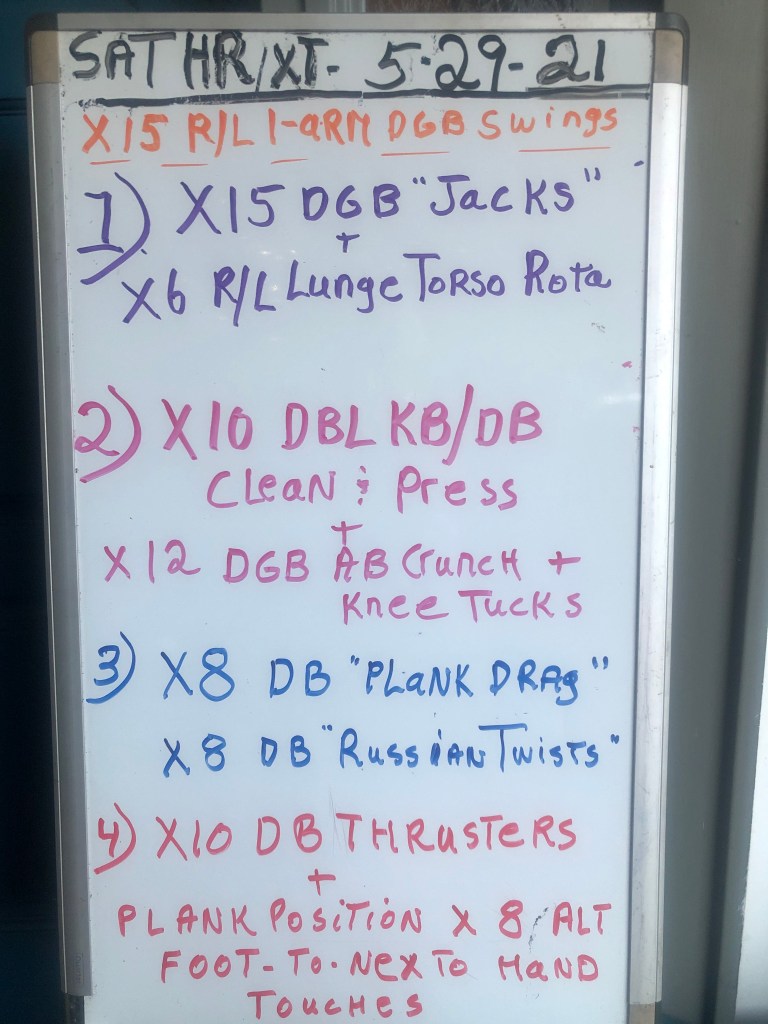 SAT HR/XT- 5-29-21
X15 R/L 1-ARM DGB Swings
1) X15 DGB "Jacks"
+
X6 R/L Lunge Torso Rota
2) X10 DBL KB/DB
Clean & Press
+
X12 DGB AB Crunch +
Knee Tucks
3) X8 DB "PLANK DRAg"
X8 DB "Russian Twists"
4) X10 DB THRUSTERS
+
PLANK POSITION X 8 ALT
FOOT-TO-NEXT TO HAND
TOUCHES